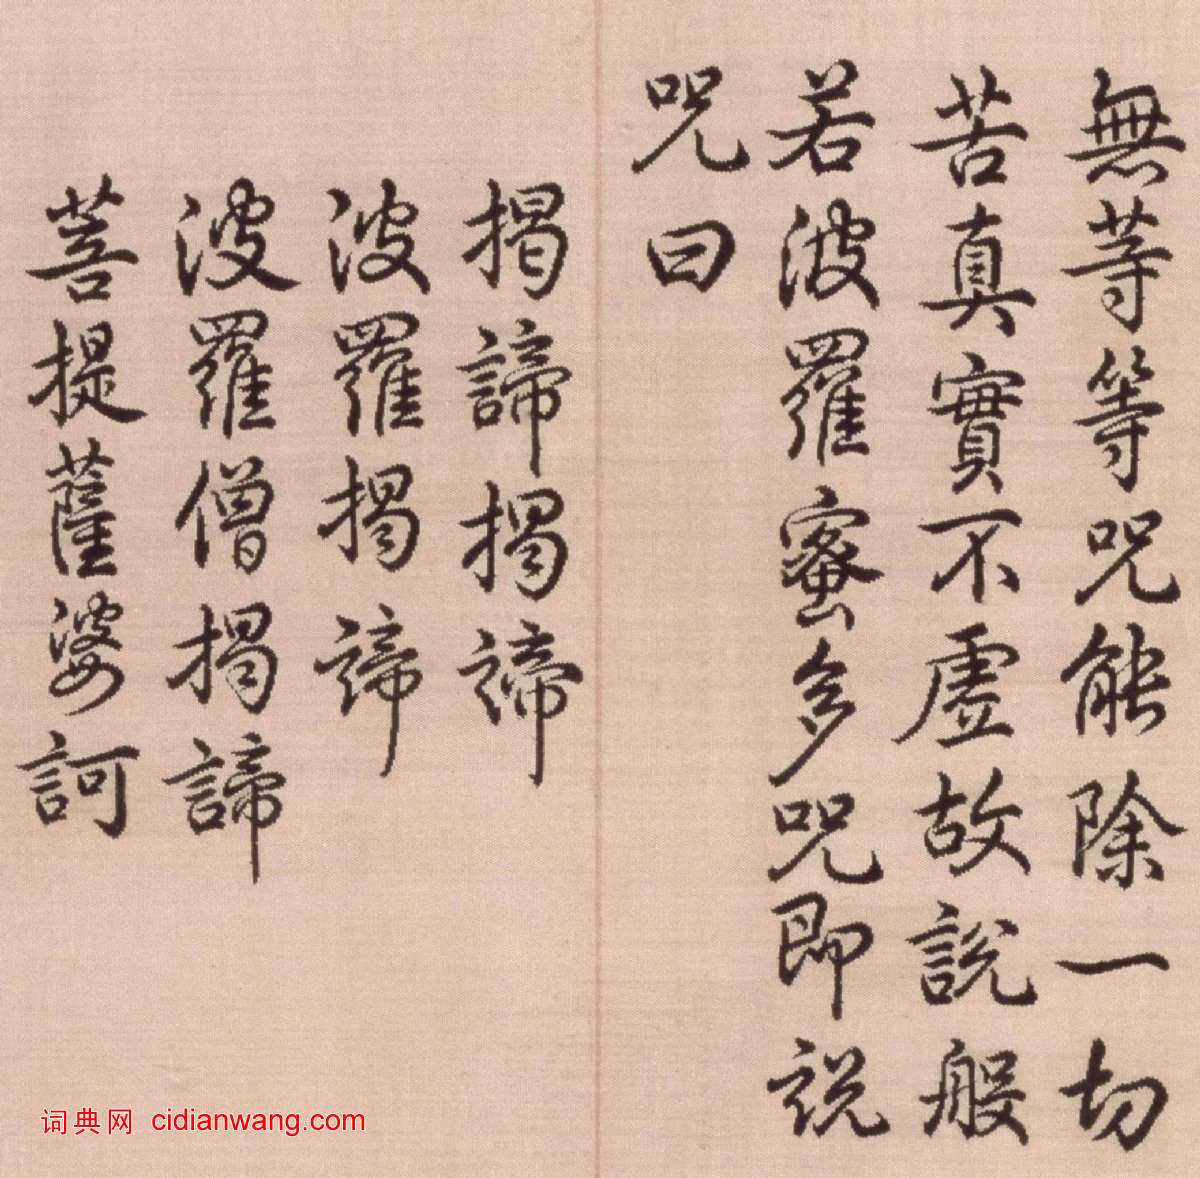 無等等咒能除一切
苦真實不虛故說般
若波羅蜜多咒即說
咒曰
揭諦揭諦
波羅揭諦
波羅僧揭諦
菩提薩婆訶
词典网 cidianwang.com